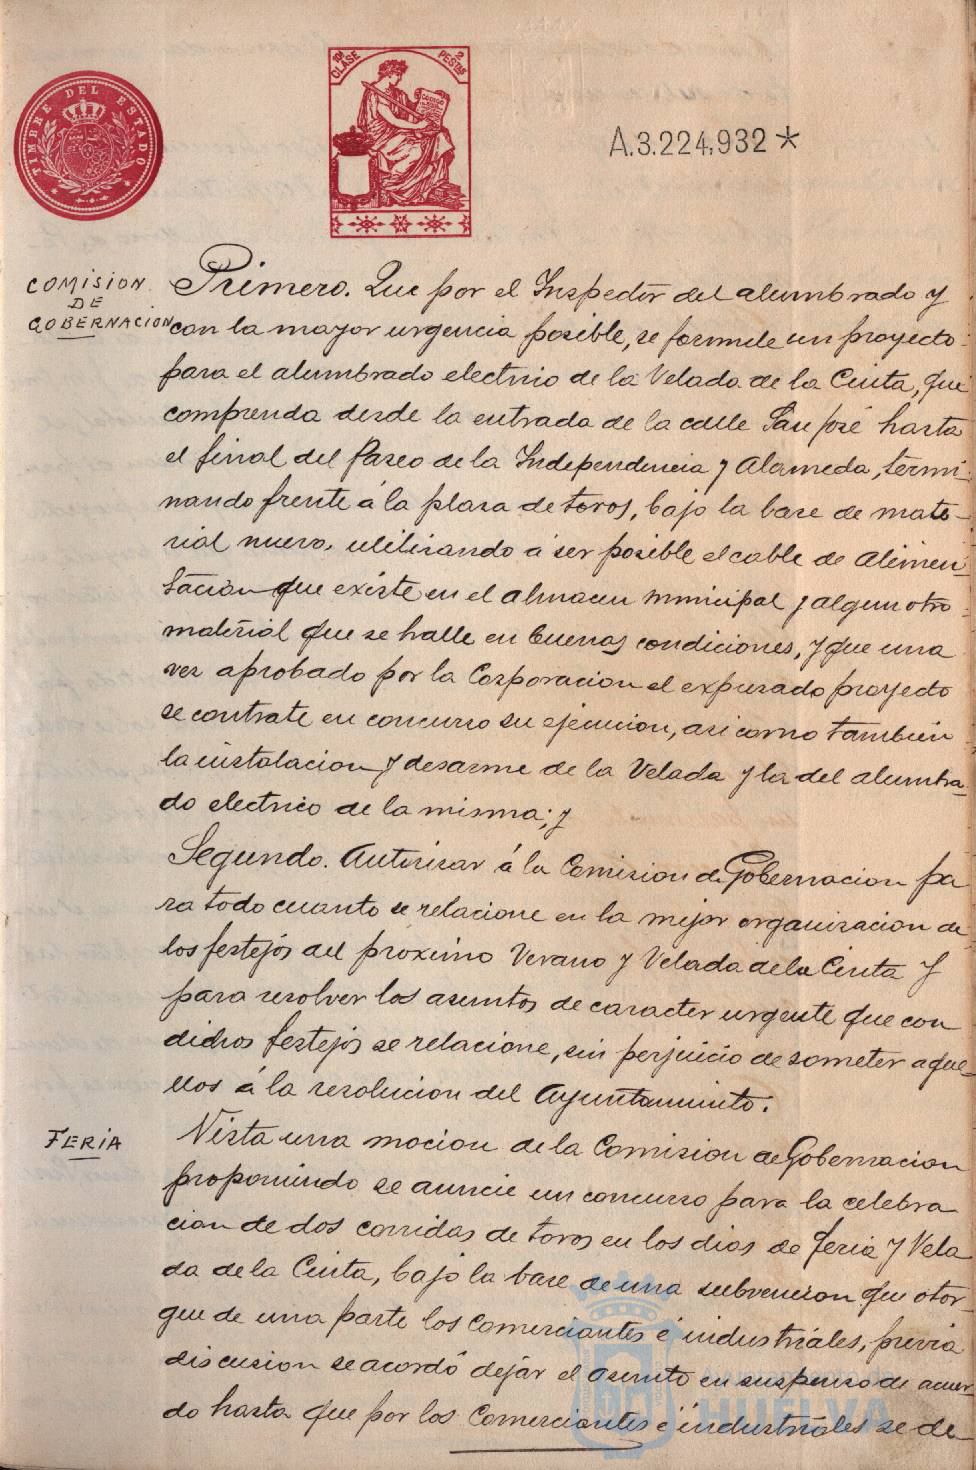 TIMBRE DEL ESTADO
10ª CLASE
2 PESTAS
CODIGO
A.3.224.932*
COMISION
DE
GOBERNACION
Primero. Que por el Inspector del alumbrado y
con la mayor urgencia posible, se formule un proyecto
para el alumbrado electrico de la Velada de la Cinta, que
comprenda desde la entrada de la calle San José hasta
el final del Paseo de la Independencia y Alameda, termi-
nando frente á la plaza de toros, bajo la base de mate-
rial nuevo, utilizando á ser posible el cable de alimen-
tación que existe en el almacen municipal y algun otro
material que se halle en buenas condiciones, y que una
vez aprobado por la Corporacion el expresado proyecto
se contrate en concurso su ejecucion, asi como tambien
la instalacion y desarme de la Velada y la del alumbra-
do electrico de la misma; y
Segundo. Autorizar á la Comision de Gobernacion pa
ra todo cuanto se relacione en la mejor organizacion de
los festejos del próximo Verano y Velada de la Cinta y
para resolver los asuntos de caracter urgente que con
dichos festejos se relacione, sin perjuicio de someter aque-
llos á la resolucion del Ayuntamiento.
FERIA
Vista una mocion de la Comision de Gobernacion
proponiendo se anuncie un concurso para la celebra
cion de dos corridas de toros en los dias de feria y Vela
da de la Cinta, bajo la base de una subvencion que otor-
gue de una parte los Comerciantes é industriales, previa
discusion se acordó dejar el asunto en suspenso de acuer-
do hasta que por los Comerciantes é industriales se de-
HUELVA